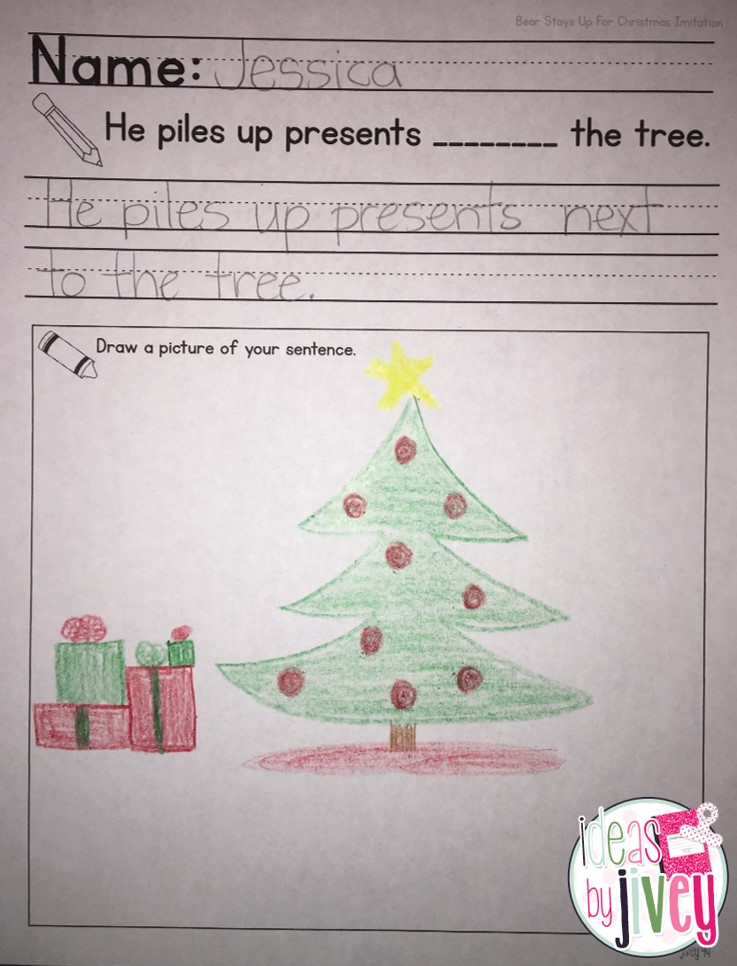 Bear Stays Up For Christmas Imitation
Name: Jessica
He piles up presents ________ the tree.
He piles up presents next
to the tree.
Draw a picture of your sentence.
ideas
by jivey